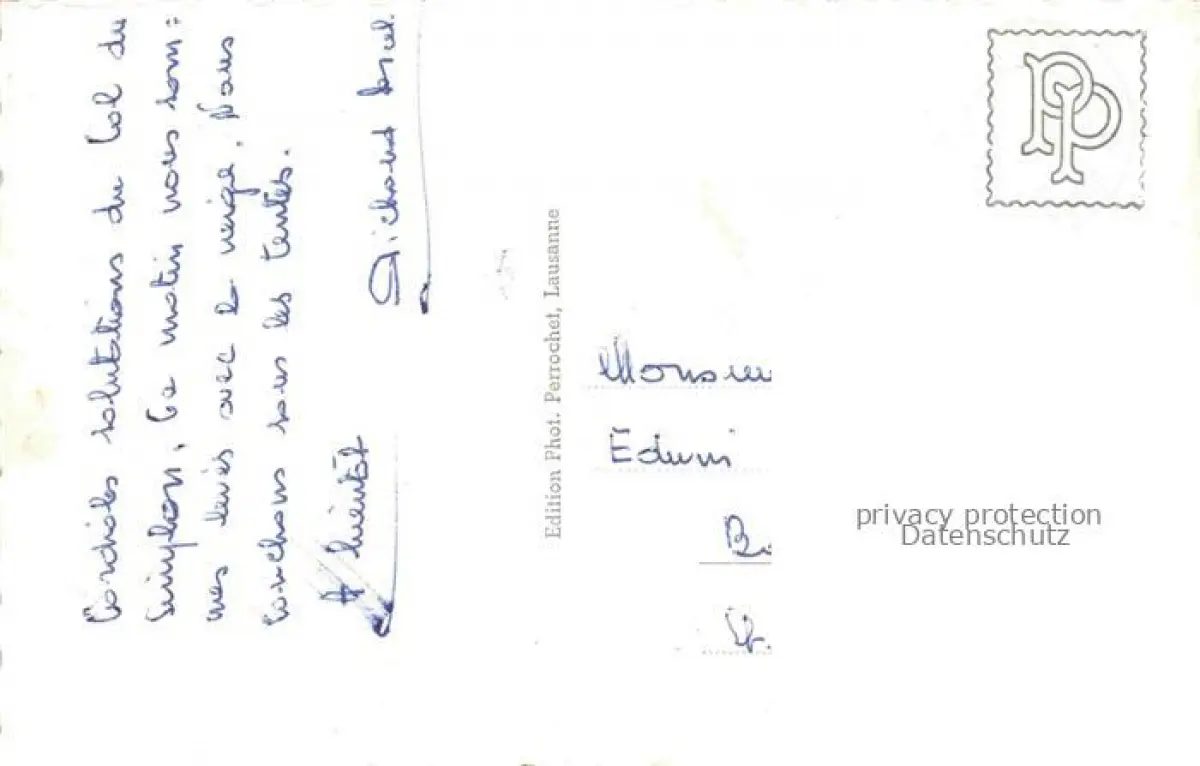 Cordiales salutations du Col du
Simplon. Ce matin nous som=
mes levés avec la neige. Nous
couchons sous les tentes.
A bientôt
Richard
Edition Phot. Perrochet, Lausanne
PP
Monsieur
Edwin
R.
privacy protection
Datenschutz